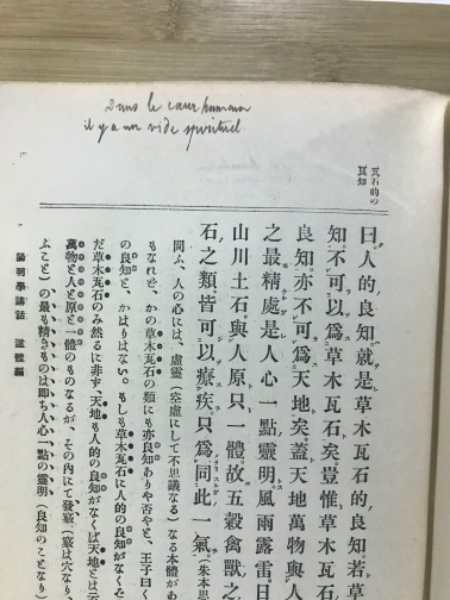 Dans le cœur humain
il y a un vide spirituel
瓦石的の
良知
曰。人的良知。就是草木瓦石的良知。若草
知。不可以爲草木瓦石矣。豈惟草木瓦石
良知。亦不可爲天地矣。蓋天地萬物與人
之最精處。是人心一點靈明。風雨露雷。日
山川土石。與人原只一體。故五穀禽獸之
石之類。皆可以療疾。只爲同此一氣。(朱本思
問ふ、人の心には、虛靈(空虛にして不思議なる)なる本體があ
もなれど、かの草木瓦石の類にも亦良知ありや否やと、王子曰く
の良知と、かはりはない。もしも草木瓦石に人的の良知がなくそ
だ草木瓦石のみ然るに非ず、天地も人的の良知がなくば天地とは云
萬物と人と原と一體のものなるが、その內にて發竅(竅は穴なり、
ふこと)の最も精きものは卽ち人心一點の靈明(良知のことなり)
陽明學講話 道體編